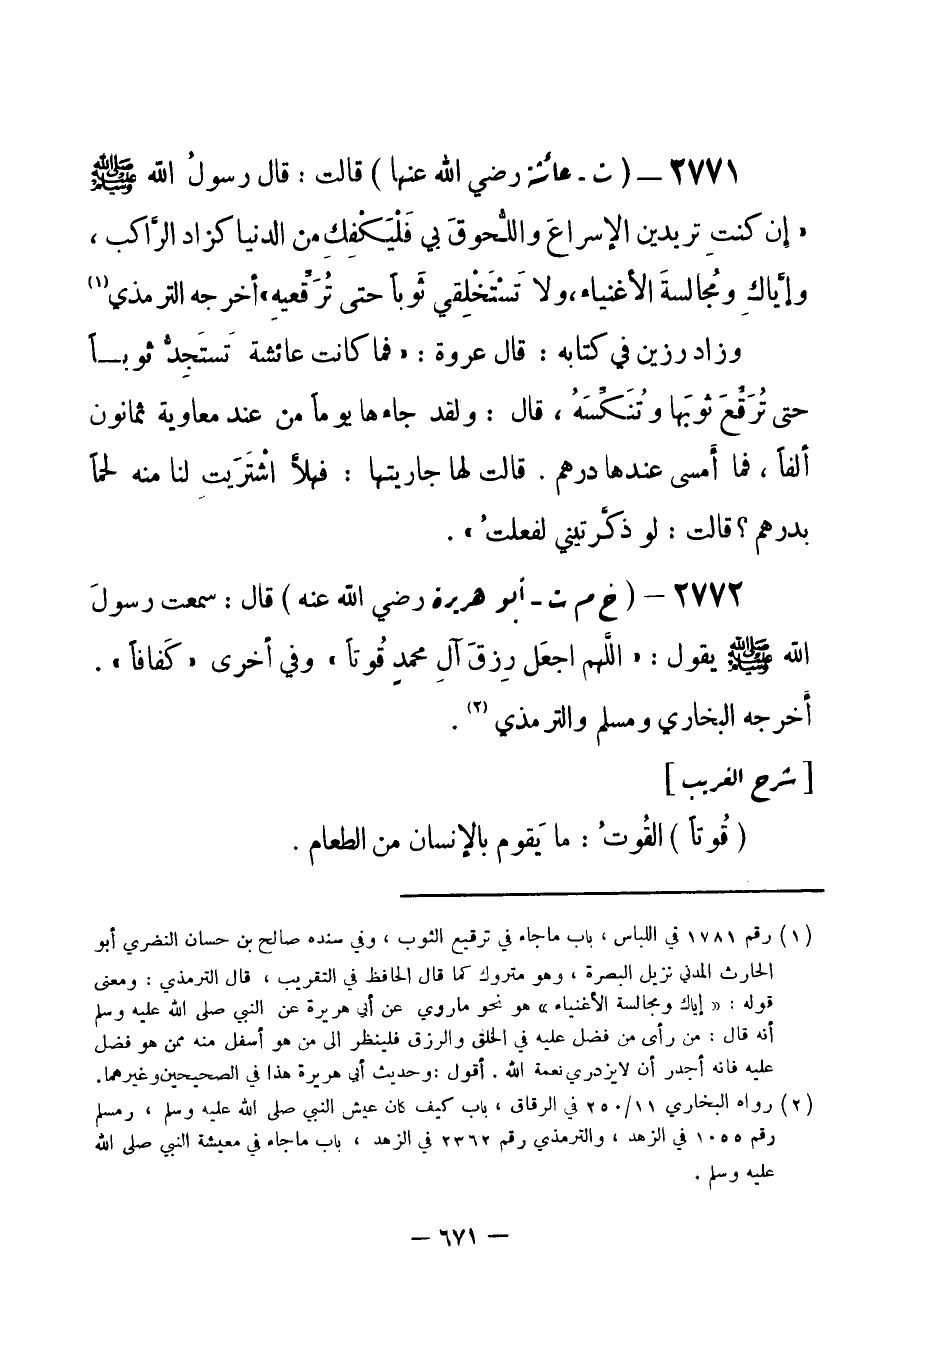 ٢٧٧١ – ( ت - عائشة رضي الله عنها ) قالت : قال رسولُ الله ﷺ
« إن كنتِ تريدين الإسراعَ واللُّحوقَ بي فَلْيَكْفِكِ من الدنيا كزاد الرَّاكب ،
وإيَّاكِ ومُجالسةَ الأغنياء ، ولا تَسْتَخْلِقي ثَوباً حتى تُرَقِّعيه » أخرجه الترمذي (١)
وزاد رزين في كتابه : قال عروة : « فما كانت عائشة تَستَجِدُّ ثوبـــاً
حتى تُرَقِّعَ ثوبَها وتُنَكِّسَهُ ، قال : ولقد جاءها يوماً من عند معاوية ثمانون
ألفاً ، فما أَمسى عندها درهم . قالت لها جاريتها : فهلاَّ اشْتَرَيتِ لنا منه لحماً
بدرهم ؟ قالت : لو ذكَّرتيني لفعلتُ » .
٢٧٧٢ – ( خ م ت - أبو هريرة رضي الله عنه ) قال : سمعت رسولَ
الله ﷺ يقول : « اللَّهم اجعَل رِزقَ آلِ محمدٍ قُوتاً » وفي أخرى « كَفافاً » .
أخرجه البخاري ومسلم والترمذي (٢) .
[ شرح الغريب ]
( قُوتاً ) القُوتُ : ما يَقوم بالإنسان من الطعام .
(١) رقم ١٧٨١ في اللباس ، باب ماجاء في ترقيع الثوب ، وفي سنده صالح بن حسان النضري أبو
الحارث المدني نزيل البصرة ، وهو متروك كما قال الحافظ في التقريب ، قال الترمذي : ومعنى
قوله : « إياك ومجالسة الأغنياء » هو نحو ماروي عن أبي هريرة عن النبي صلى الله عليه وسلم
أنه قال : من رأى من فضل عليه في الخلق والرزق فلينظر الى من هو أسفل منه ممن هو فضل
عليه فانه أجدر أن لايزدري نعمة الله . أقول : وحديث أبي هريرة هذا في الصحيحين وغيرهما .
(٢) رواه البخاري ١١/٢٥٠ في الرقاق ، باب كيف كان عيش النبي صلى الله عليه وسلم ، رمسلم
رقم ١٠٥٥ في الزهد ، والترمذي رقم ٢٣٦٢ في الزهد ، باب ماجاء في معيشة النبي صلى الله
عليه وسلم .
– ٦٧١ –